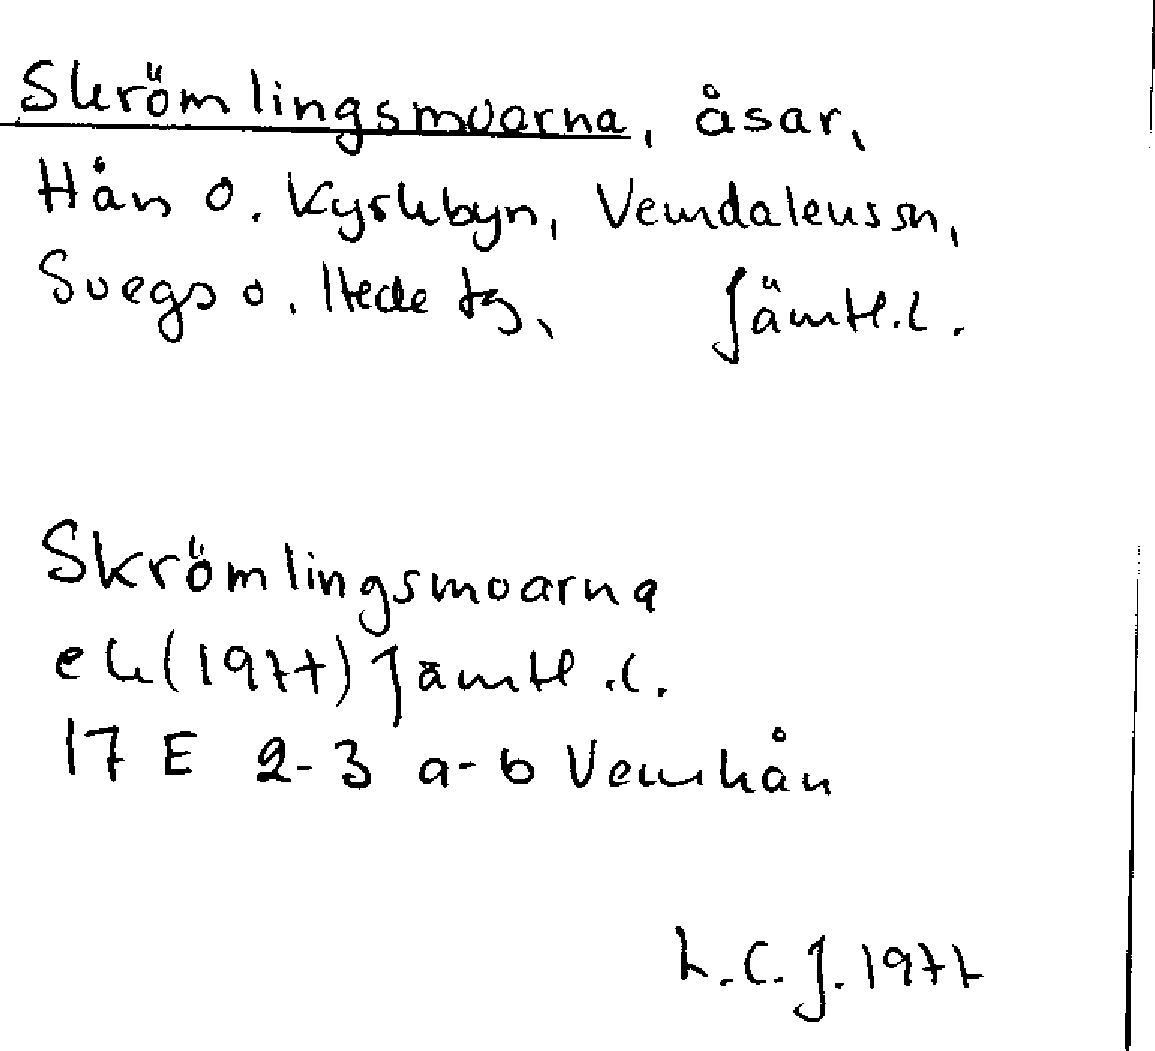 Skrömlingsmoarna, åsar,
Hån o. Kyrkbyn, Vemdalens sn,
Svegs o. Hede tg, Jämtl.l.
Skrömlingsmoarna
ek (1977) Jämtl.l.
17 E 2-3 a-b Vemhån
L.C.J. 1977